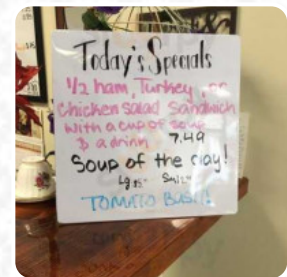 Today's Specials
1/2 ham, Turkey, or
Chicken salad Sandwich
with a cup of soup
& a drink 7.49
Soup of the day!
Lg Sm
TOMATO BASIL!